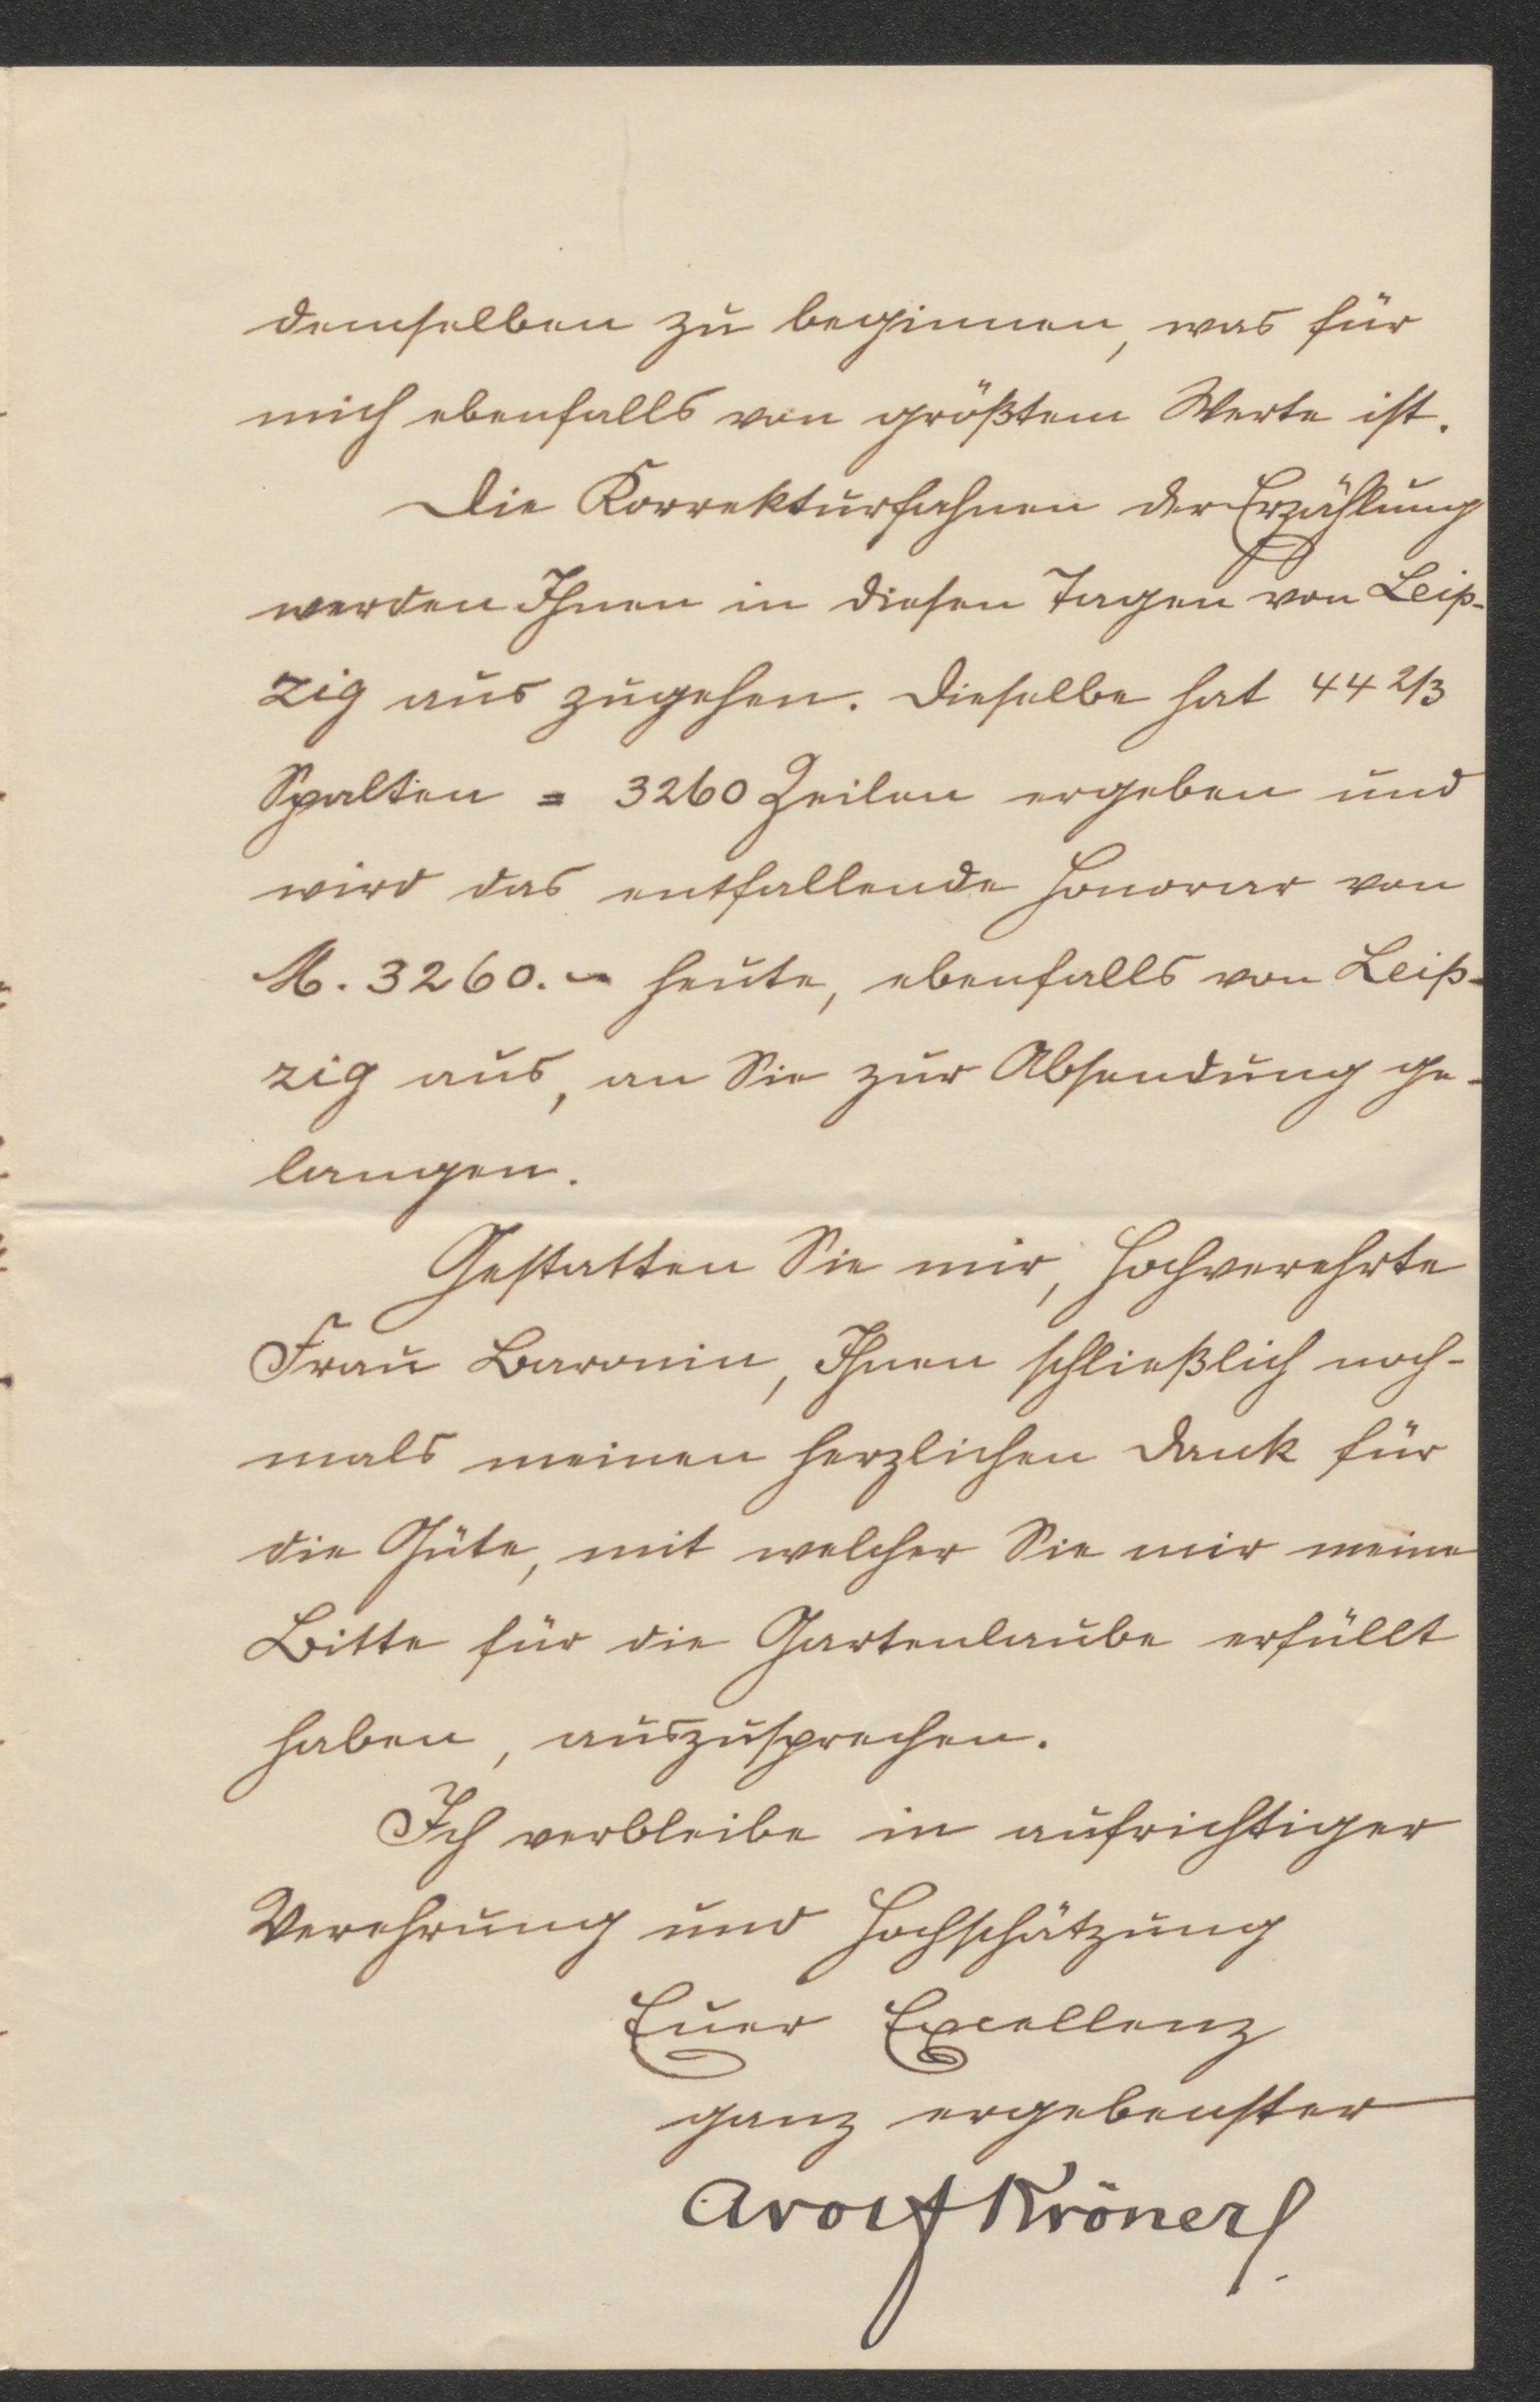 demselben zu beginnen, was für
mich ebenfalls von größtem Werte ist.
Die Korrekturfahnen der Erzählung
werden Ihnen in diesen Tagen von Leip-
zig aus zugehen. Dieselbe hat 44 2/3
Spalten = 3260 Zeilen ergeben und
wird das entfallende Honorar von
M. 3260.- heute, ebenfalls von Leip-
zig aus, an Sie zur Absendung ge-
langen.
Gestatten Sie mir, hochverehrte
Frau Baronin, Ihnen schließlich noch-
mals meinen herzlichen Dank für
die Güte, mit welcher Sie mir meine
Bitte für die Gartenlaube erfüllt
haben, auszusprechen.
Ich verbleibe in aufrichtiger
Verehrung und Hochschätzung
Euer Excellenz
ganz ergebenster
Adolf Kröner